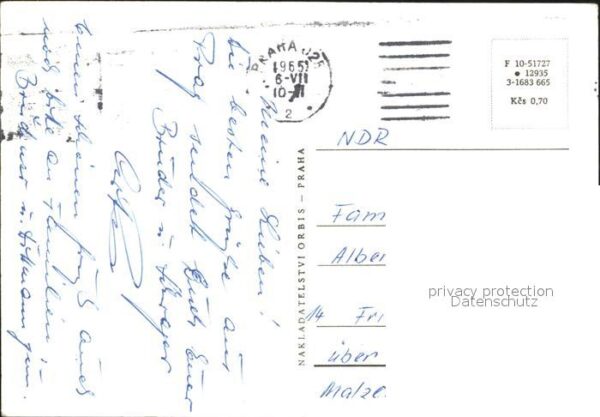 Meine Lieben!
die besten Grüße aus
Prag sendet Euch Euer
Bruder u. Schwager
einen schönen Gruß auch
noch bitte an Familien:-
u. Dittmann jun.
PRAHA 025
1965
6-VII
10-11
2
F 10-51727
• 12935
3-1683 665
Kčs 0,70
NAKLADATELSTVÍ ORBIS – PRAHA
NDR
Fam
Alber
14 Fri
über
Malze
privacy protection
Datenschutz